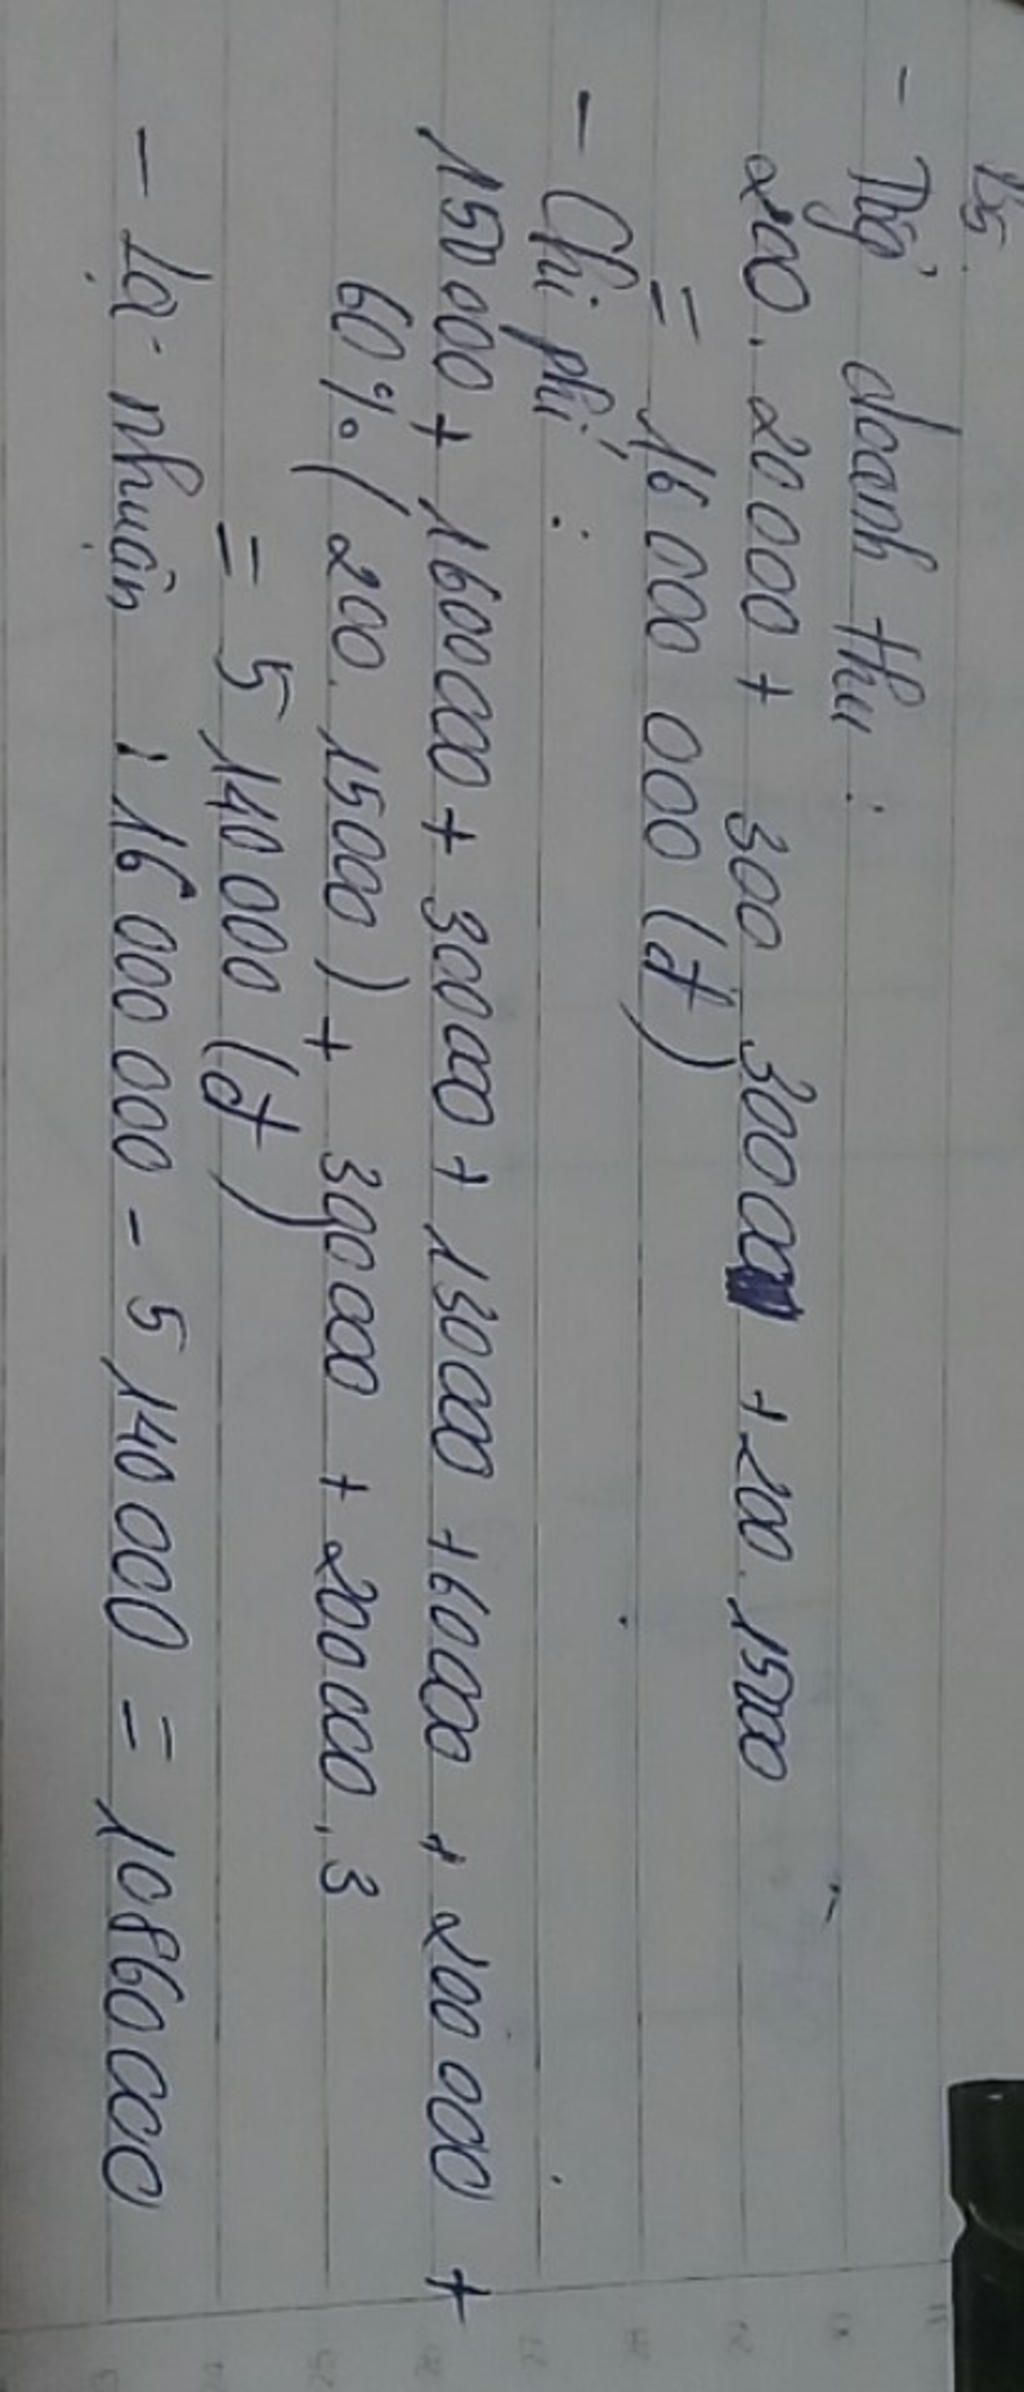 B5.
- Tổng doanh thu :
200 . 20 000 + 300 . 30000 + 200 . 15000
= 16 000 000 (đ)
- Chi phí :
150 000 + 1600000 + 300000 + 130000 + 60000 + 200 000 +
60% ( 200 . 15000 ) + 300000 + 200000 . 3
= 5 140 000 (đ)
- Lợi nhuận : 16 000 000 - 5 140 000 = 10860000